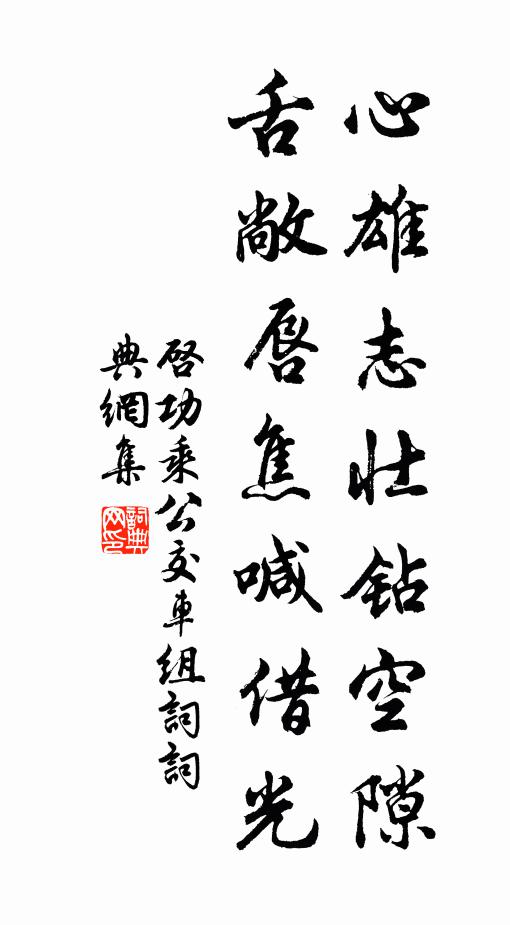 心雄志壮钻空隙
舌敝唇焦喊借光
启功乘公交車组詞詞
典網集
詞典
网印